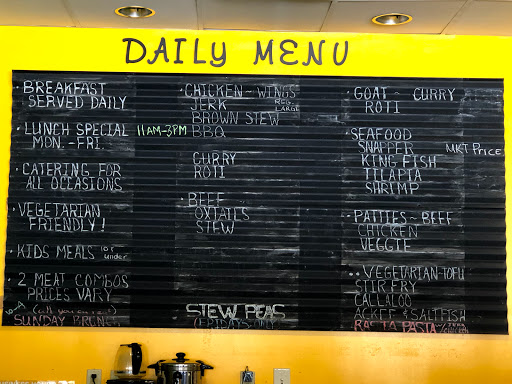 DAILY MENU
· BREAKFAST
SERVED DAILY
· LUNCH SPECIAL 11AM-3PM
MON.-FRI.
· CATERING FOR
ALL OCCASIONS
· VEGETARIAN
FRIENDLY!
· KIDS MEALS 10 or under
· 2 MEAT COMBOS
PRICES VARY
SUNDAY BRUNCH
· CHICKEN ~ WINGS
JERK REG. LARGE
BROWN STEW
BBQ
CURRY
ROTI
· BEEF
OXTAILS
STEW
STEW PEAS
(FRIDAYS ONLY)
GOAT ~ CURRY
ROTI
· SEAFOOD
SNAPPER MKT PRICE
KING FISH
TILAPIA
SHRIMP
· PATTIES ~ BEEF
CHICKEN
VEGGIE
·· VEGETARIAN-TOFU
STIR FRY
CALLALOO
ACKEE & SALTFISH
RASTA PASTA